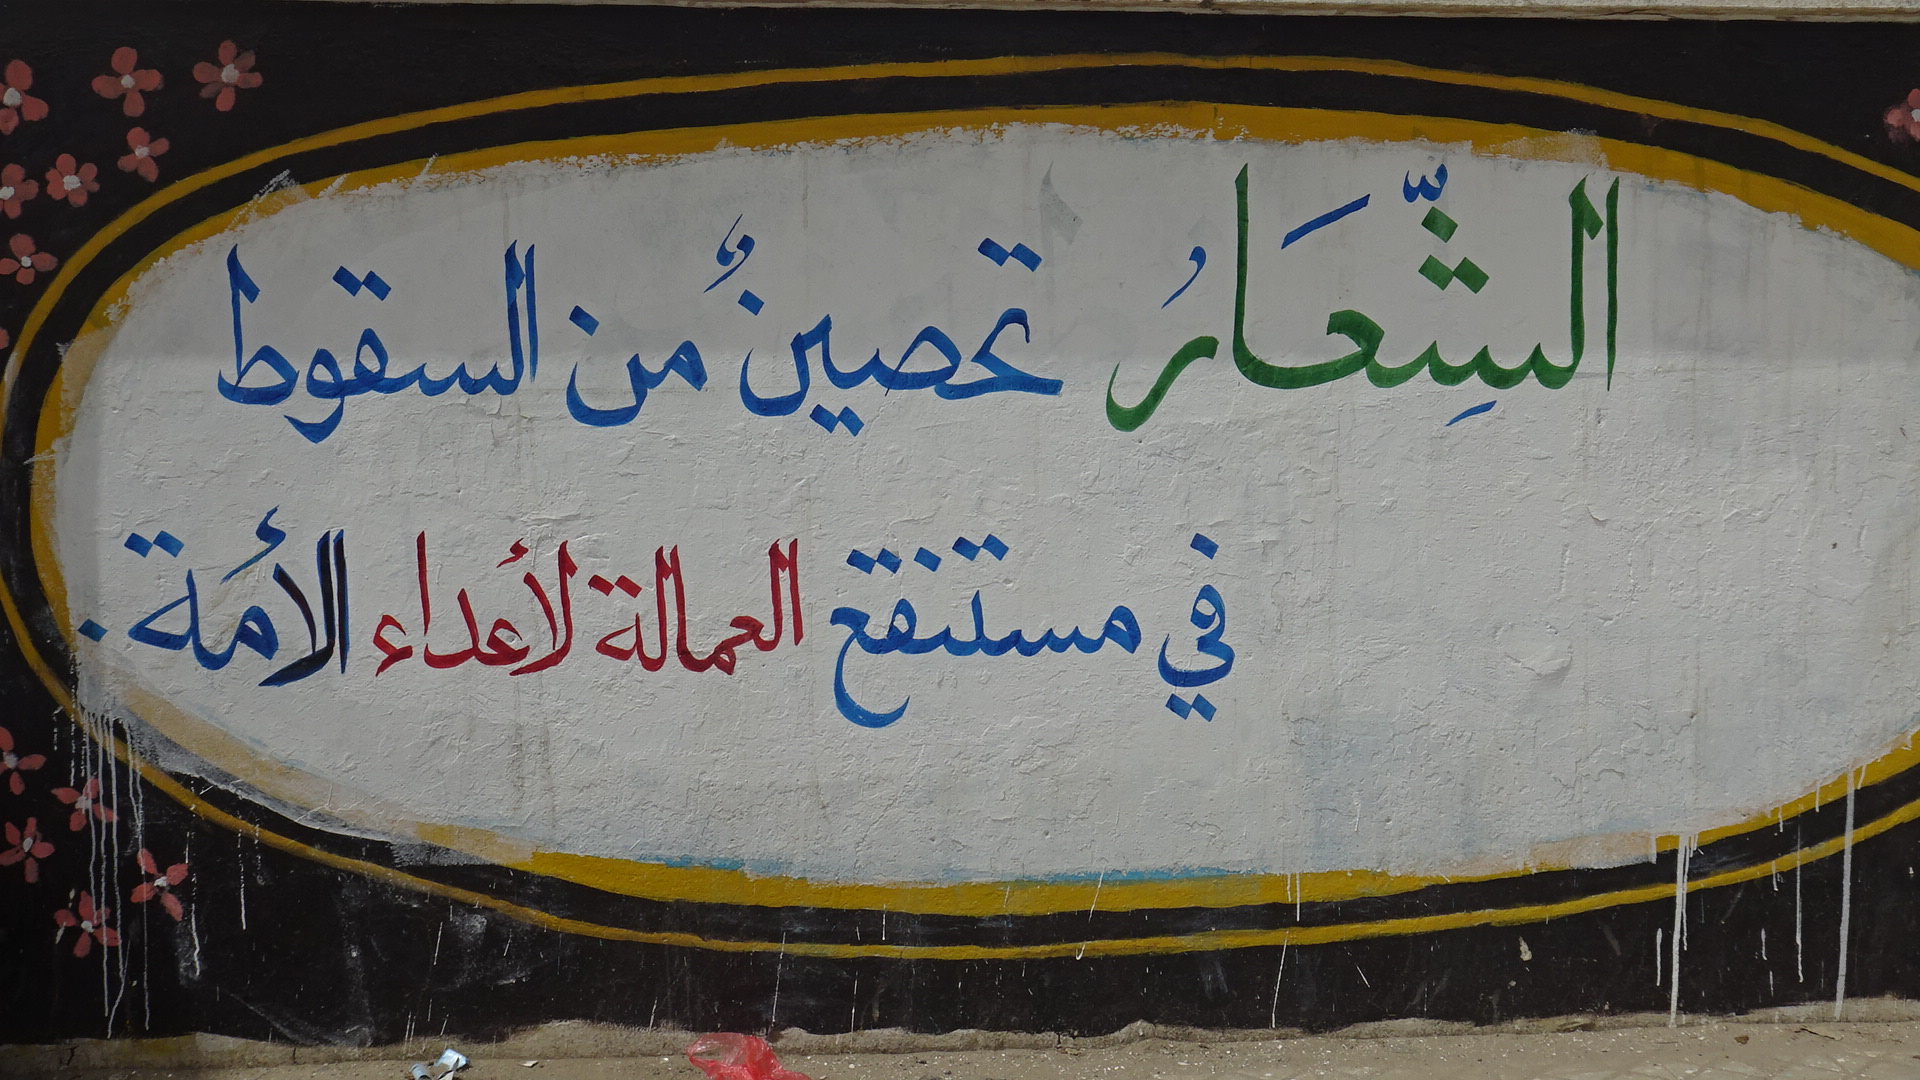 الشِّعَارُ تحصينٌ من السقوط
في مستنقع العمالة لأعداء الأمة.